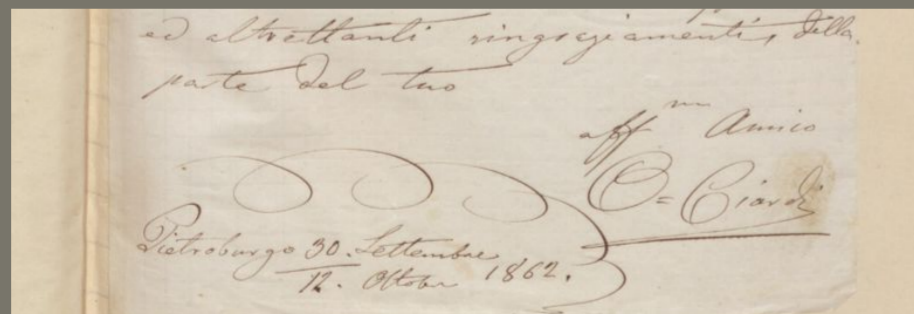 ed altrettanti ringraziamenti, della
parte del tuo
aff mo Amico
C= Ciardi
Pietroburgo 30. Settembre
12. Ottobre 1862.